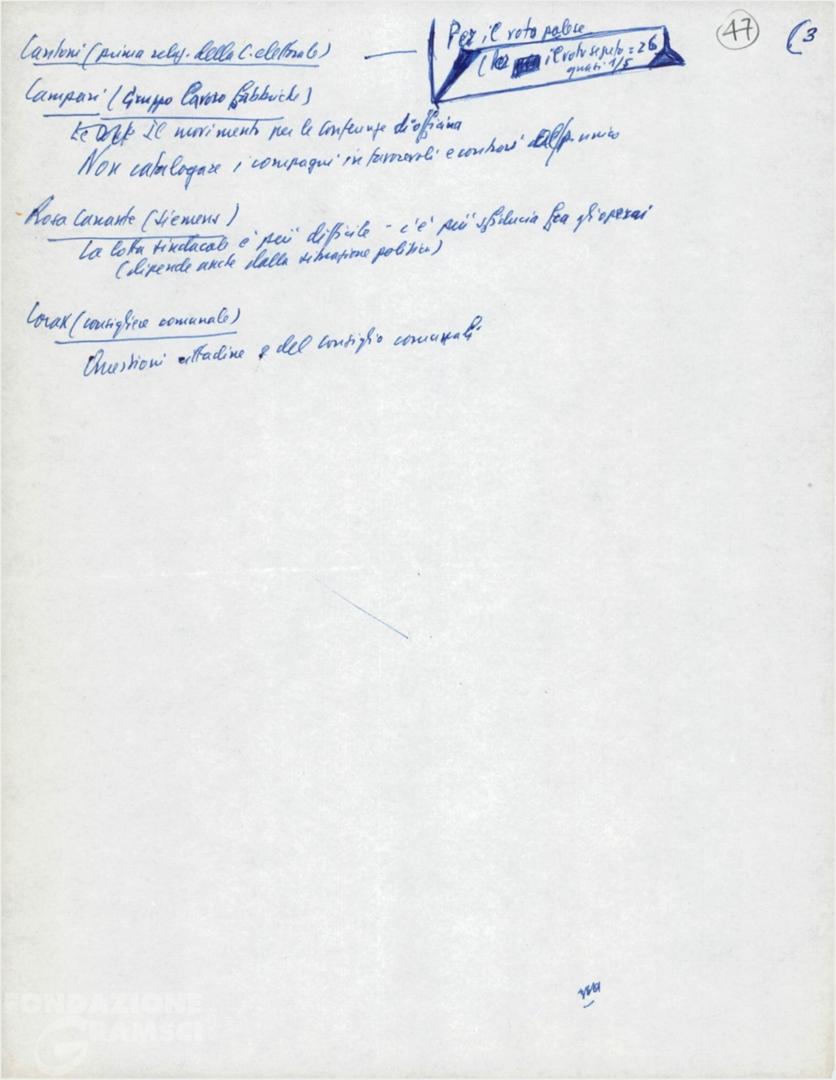 47
(3
Cantoni (prima relaz. della C. elettorale)
Per il voto palese
(Per il voto segreto = 26
quasi 1/5
Campari (Gruppo lavoro fabbriche)
Il movimento per le conferenze di officina
Non catalogare i compagni in favorevoli e contrari al p. unico
Rosa Canante (Siemens)
La lotta sindacale è più difficile - c'è più sfiducia fra gli operai
(dipende anche dalla situazione politica)
Corax (consigliere comunale)
Questioni cittadine e del consiglio comunale
FONDAZIONE
GRAMSCI